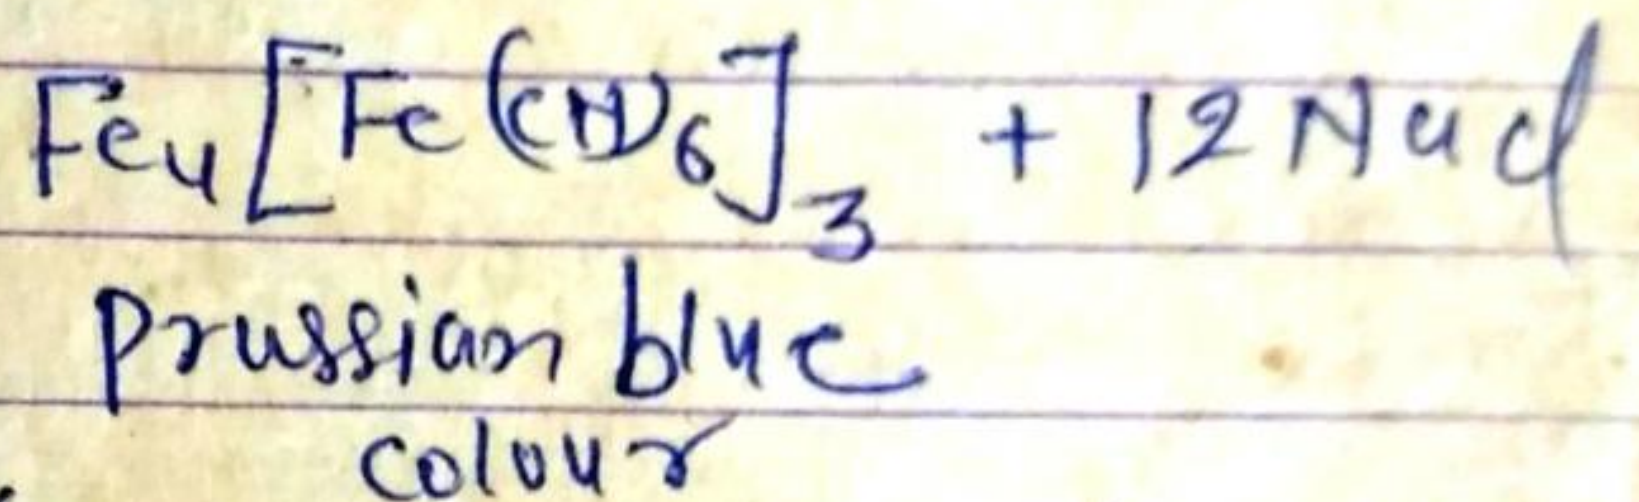 Fe₄[Fe(CN)₆]₃ + 12NaCl
prussian blue
colour